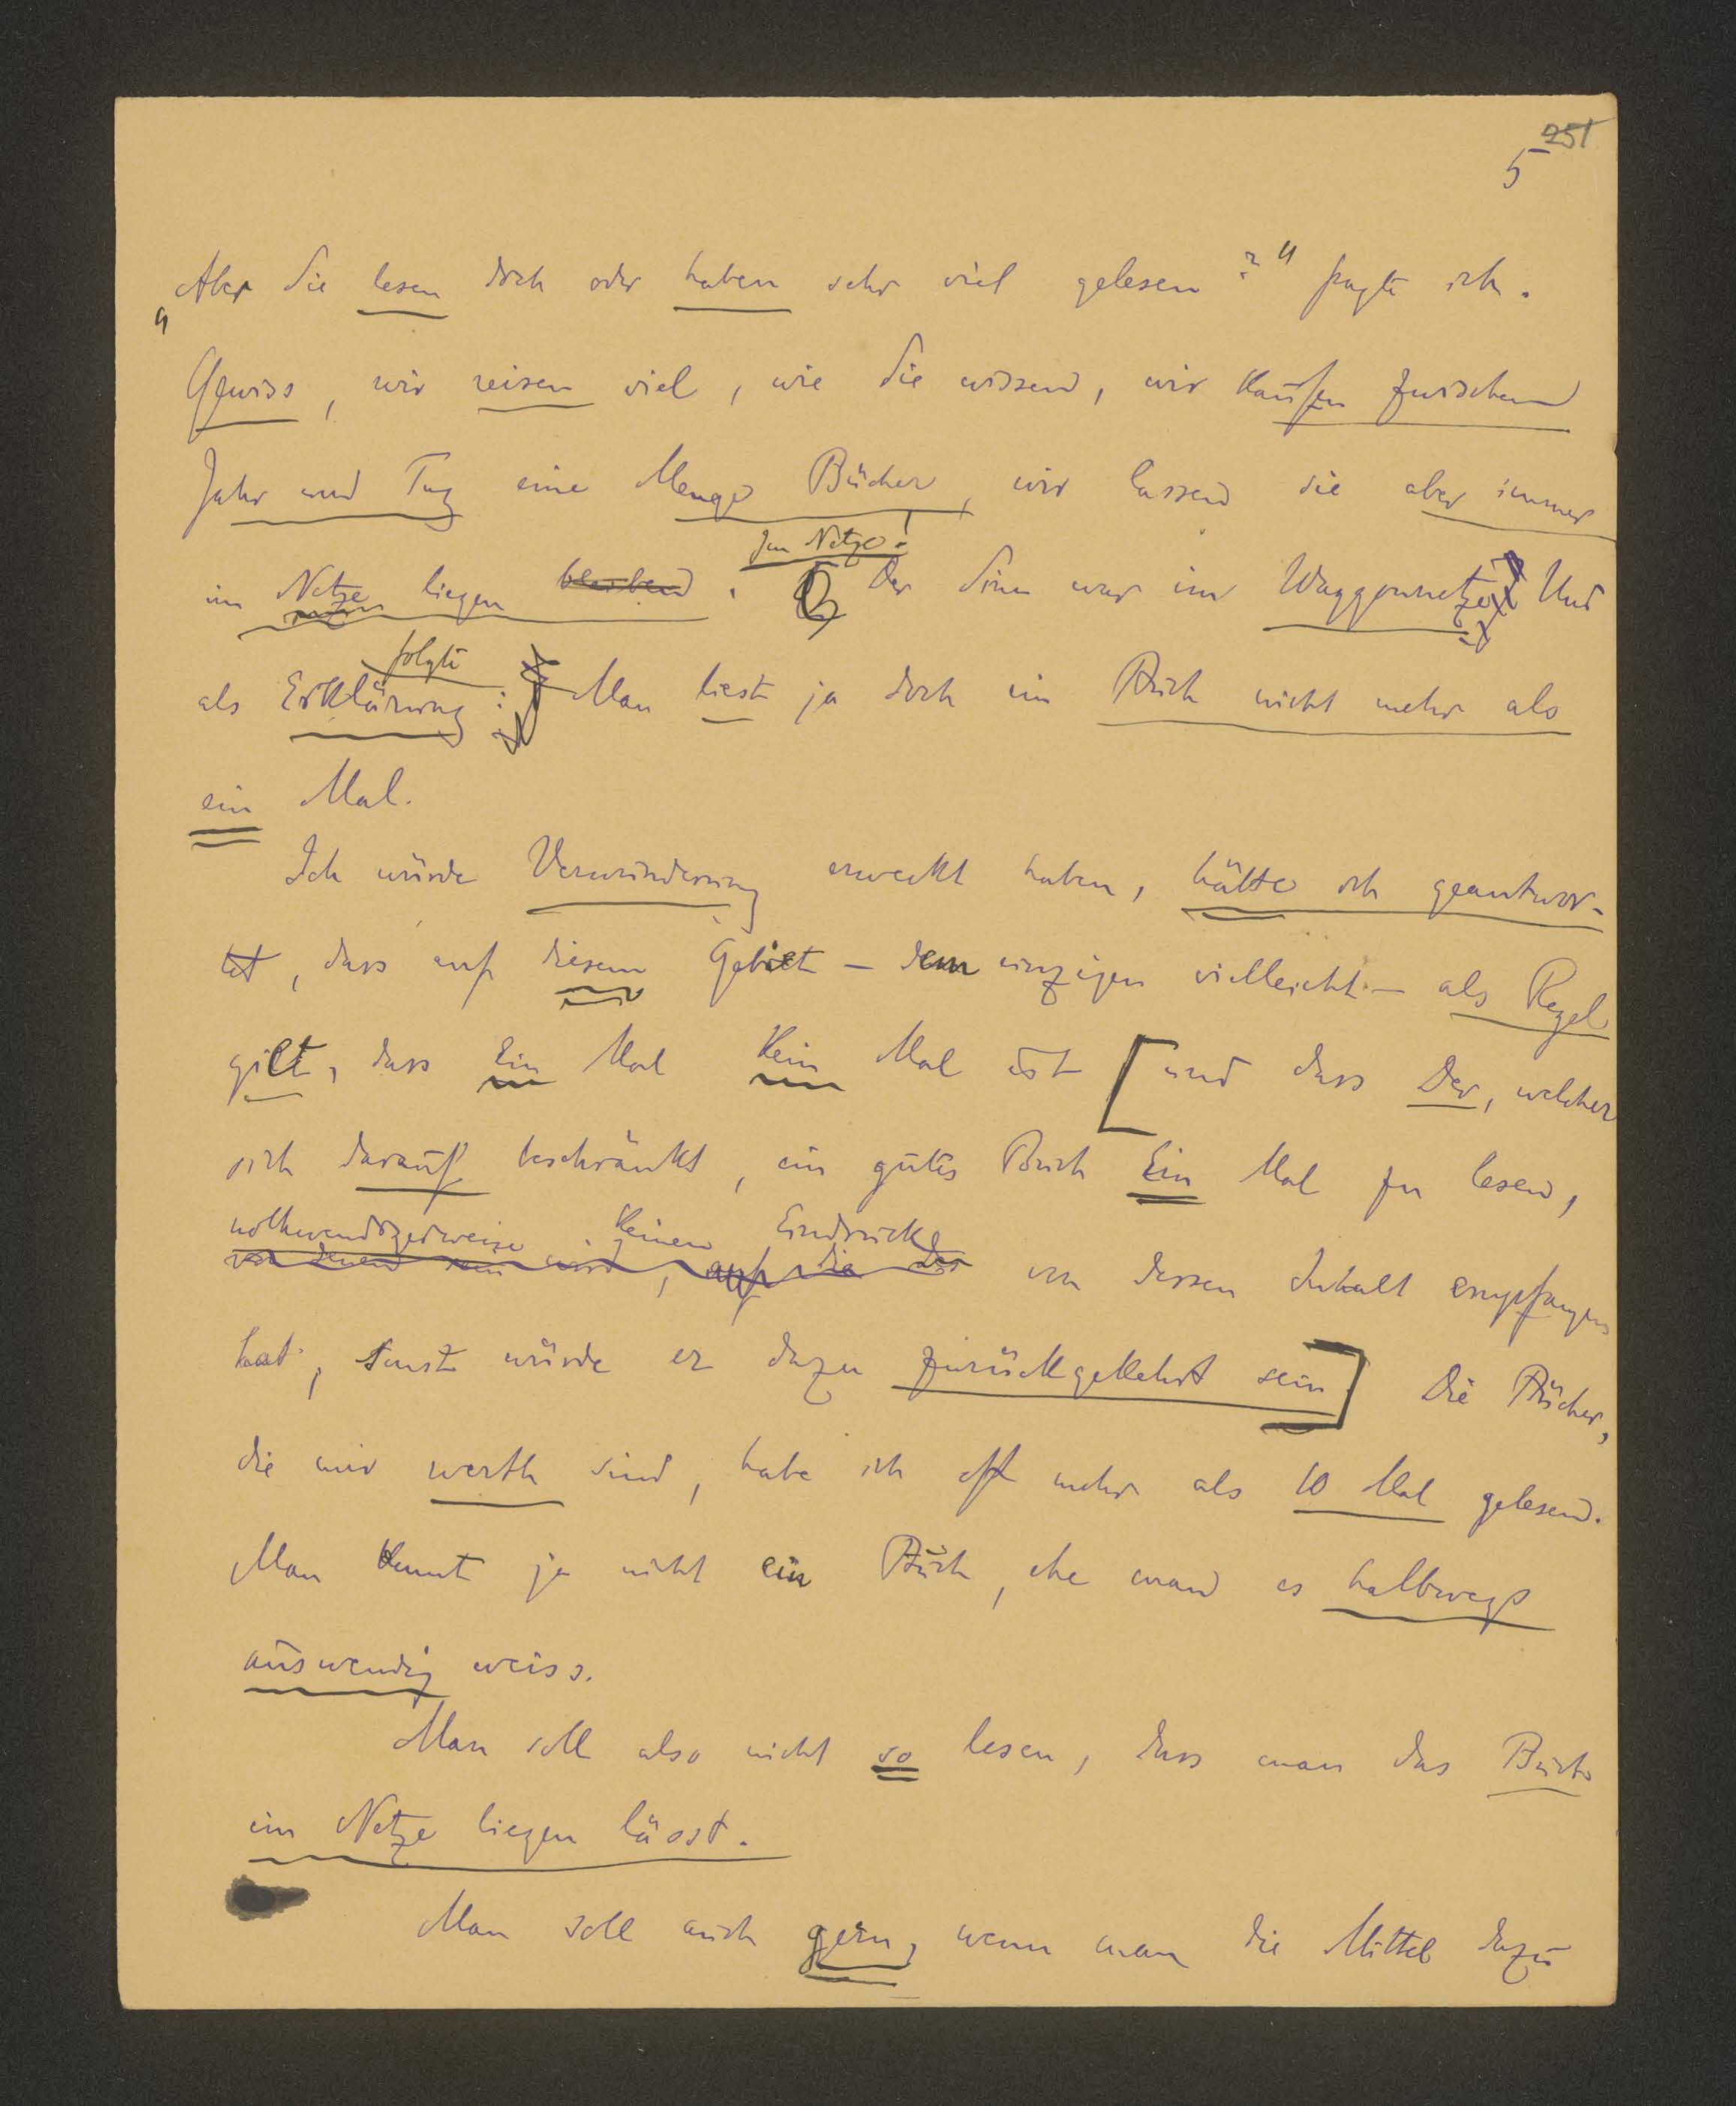 251
5
„Aber Sie lesen doch oder haben sehr viel gelesen?“ fragte ich.
Gewiss, wir reisen viel, wie Sie wissen, wir kaufen zwischen
Jahr und Tag eine Menge Bücher, wir lassen sie aber immer
im Netze liegen bleiben. Im Netze! Der Sinn war im Waggonnetze. Und
als Erklärung folgte: Man liest ja doch ein Buch nicht mehr als
ein Mal.
Ich würde Verwunderung erweckt haben, hätte ich geantwor-
tet, dass auf diesem Gebiet – dem einzigen vielleicht – als Regel
gilt, dass Ein Mal Kein Mal ist [und dass Der, welcher
sich darauf beschränkt, ein gutes Buch Ein Mal zu lesen,
nothwendigerweise keinen Eindruck
von dessen Inhalt empfangen
hat, sonst würde er dazu zurückgekehrt sein.] Die Bücher,
die mir werth sind, habe ich oft mehr als 10 Mal gelesen.
Man kennt ja nicht ein Buch, ehe man es halbwegs
auswendig weiss.
Man soll also nicht so lesen, dass man das Buch
im Netze liegen lässt.
Man soll auch gern, wenn man die Mittel dazu